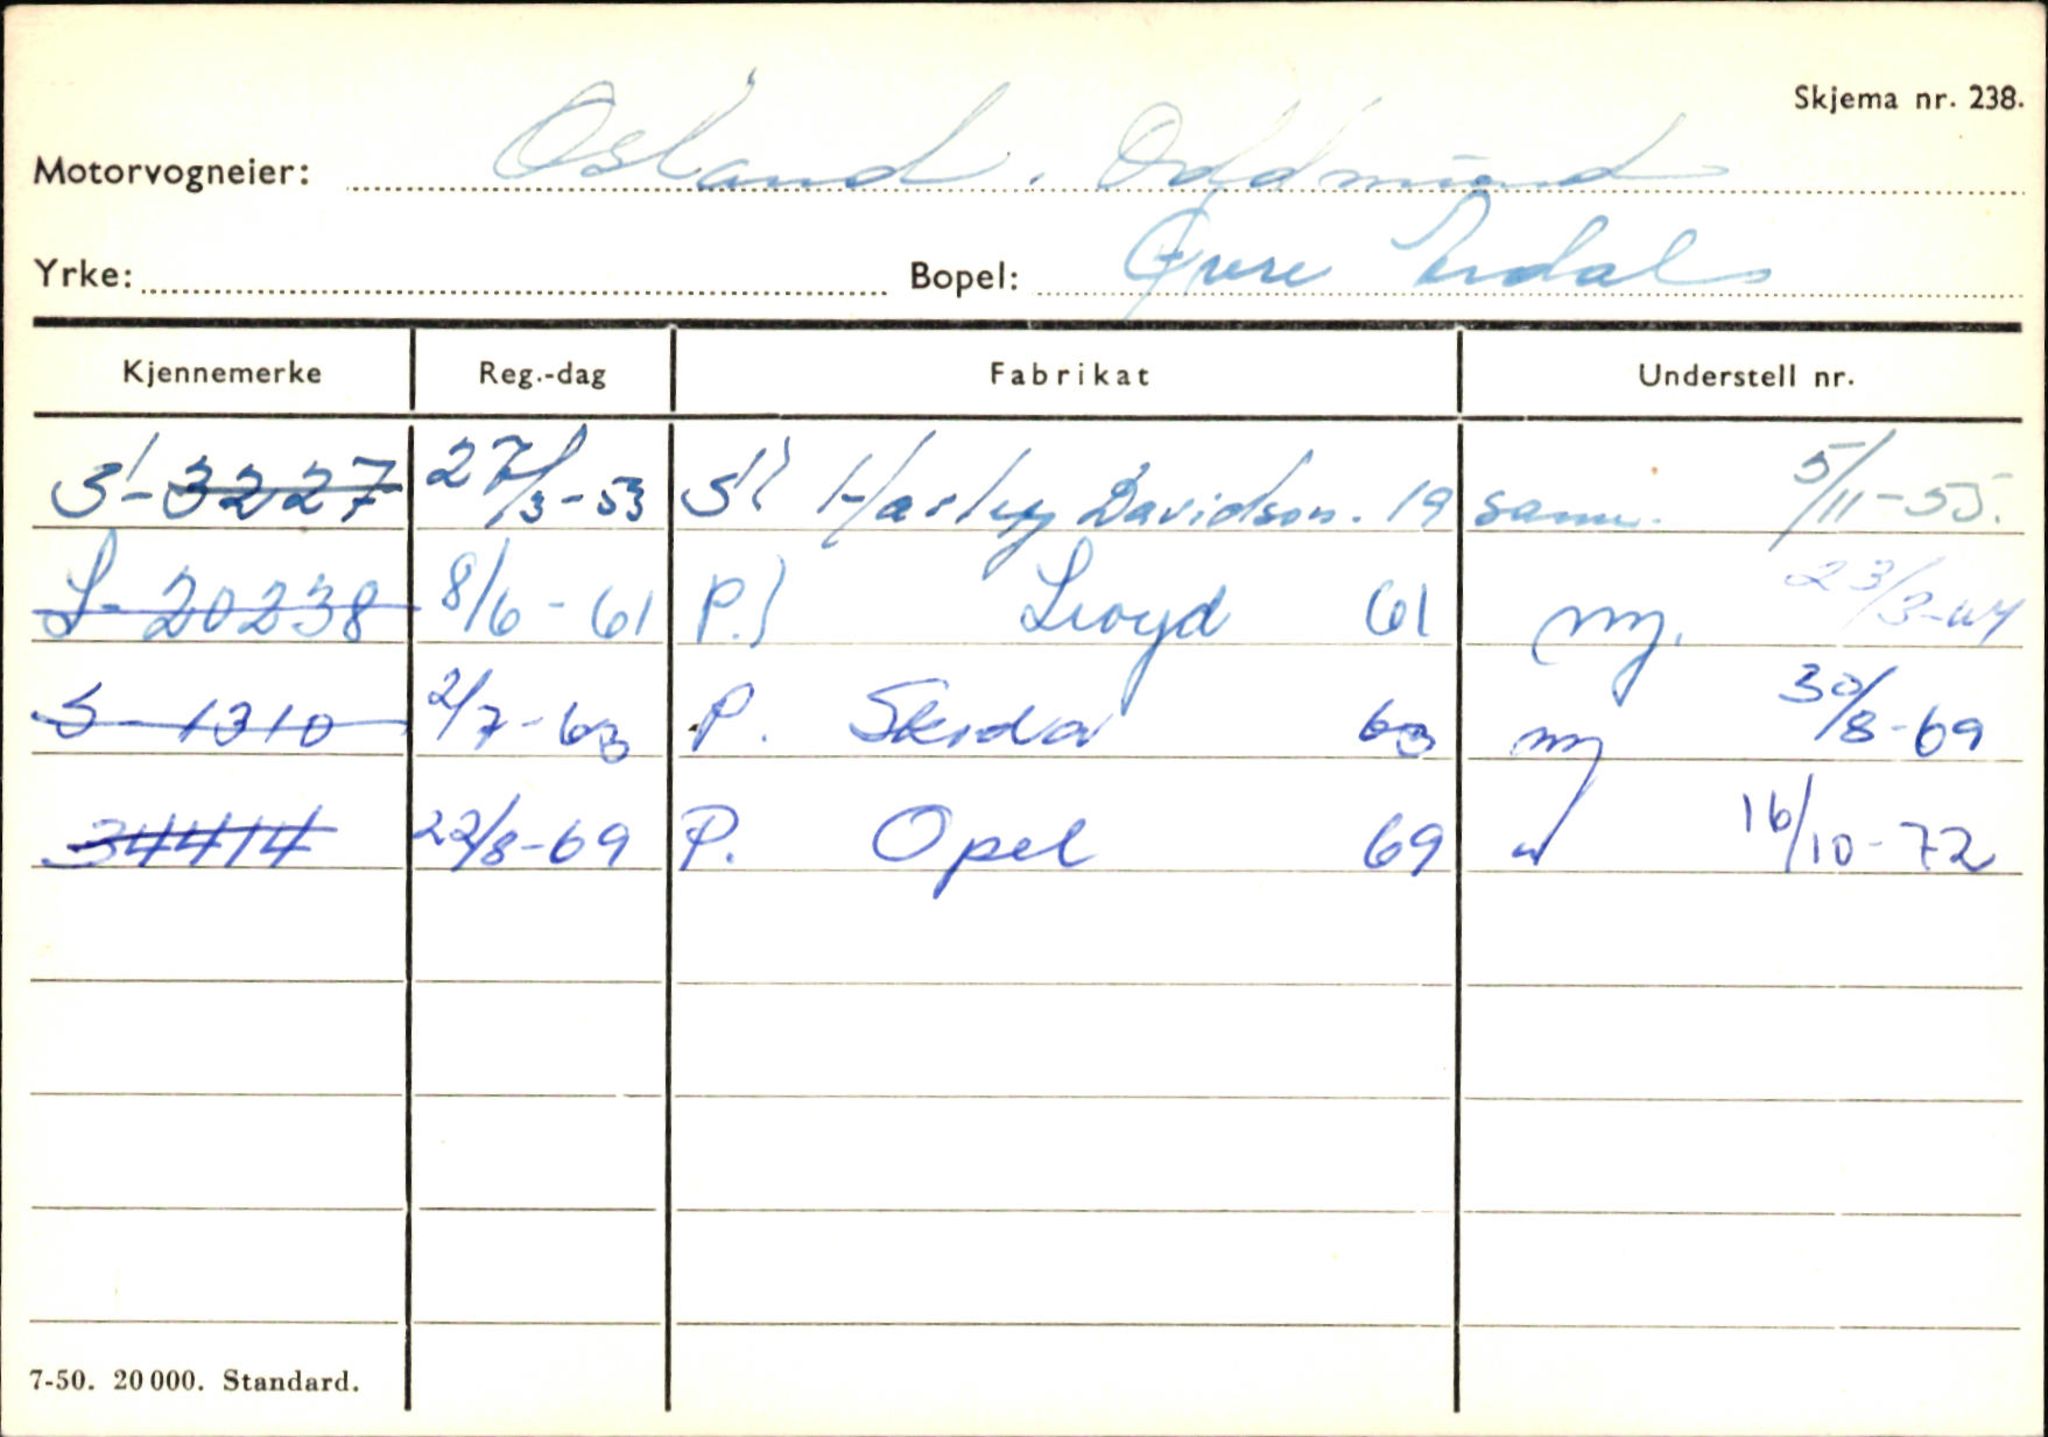 Skjema nr. 238.
Motorvogneier: Osland, Oddmund
Yrke: Bopel: Øvre Årdal
Kjennemerke Reg.-dag Fabrikat Understell nr.
S-3227 27/3-53 S) Harley Davidson. 19 samm. 5/11-55.
S-20238 8/6-61 P.) Lloyd 61 ny. 23/3-64
S-1310 2/7-63 P. Skoda 63 ny 30/8-69
34414 22/8-69 P. Opel 69 16/10-72
7-50. 20 000. Standard.